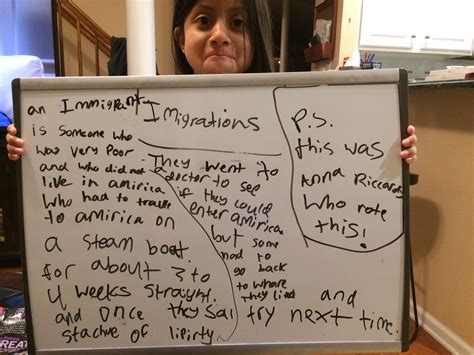 Immigrations
an Immigrant
is someone who
was very Poor
and who did not
live in amirica
who had to travle
to amirica on
a steam boat
for about 3 to
4 weeks straight.
and once they Sai
stachue of lipirty
They went to
a doctor to see
if they could
enter amirican
but some
had to
go back
to whare
they lived
and
try next time.
P.S.
this was
Anna Riccards
who rote
this!